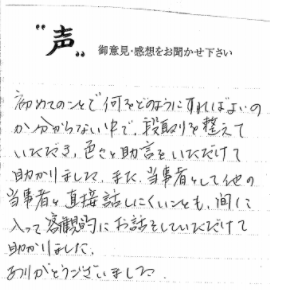 "声" 御意見・感想をお聞かせ下さい
初めてのことで何をどのようにすればよいの
か分からない中で、段取りを整えて
いただき、色々と助言をいただけて
助かりました。また、当事者として他の
当事者と直接話しにくいことも、間に
入って客観的にお話をしていただけて
助かりました。
ありがとうございました。